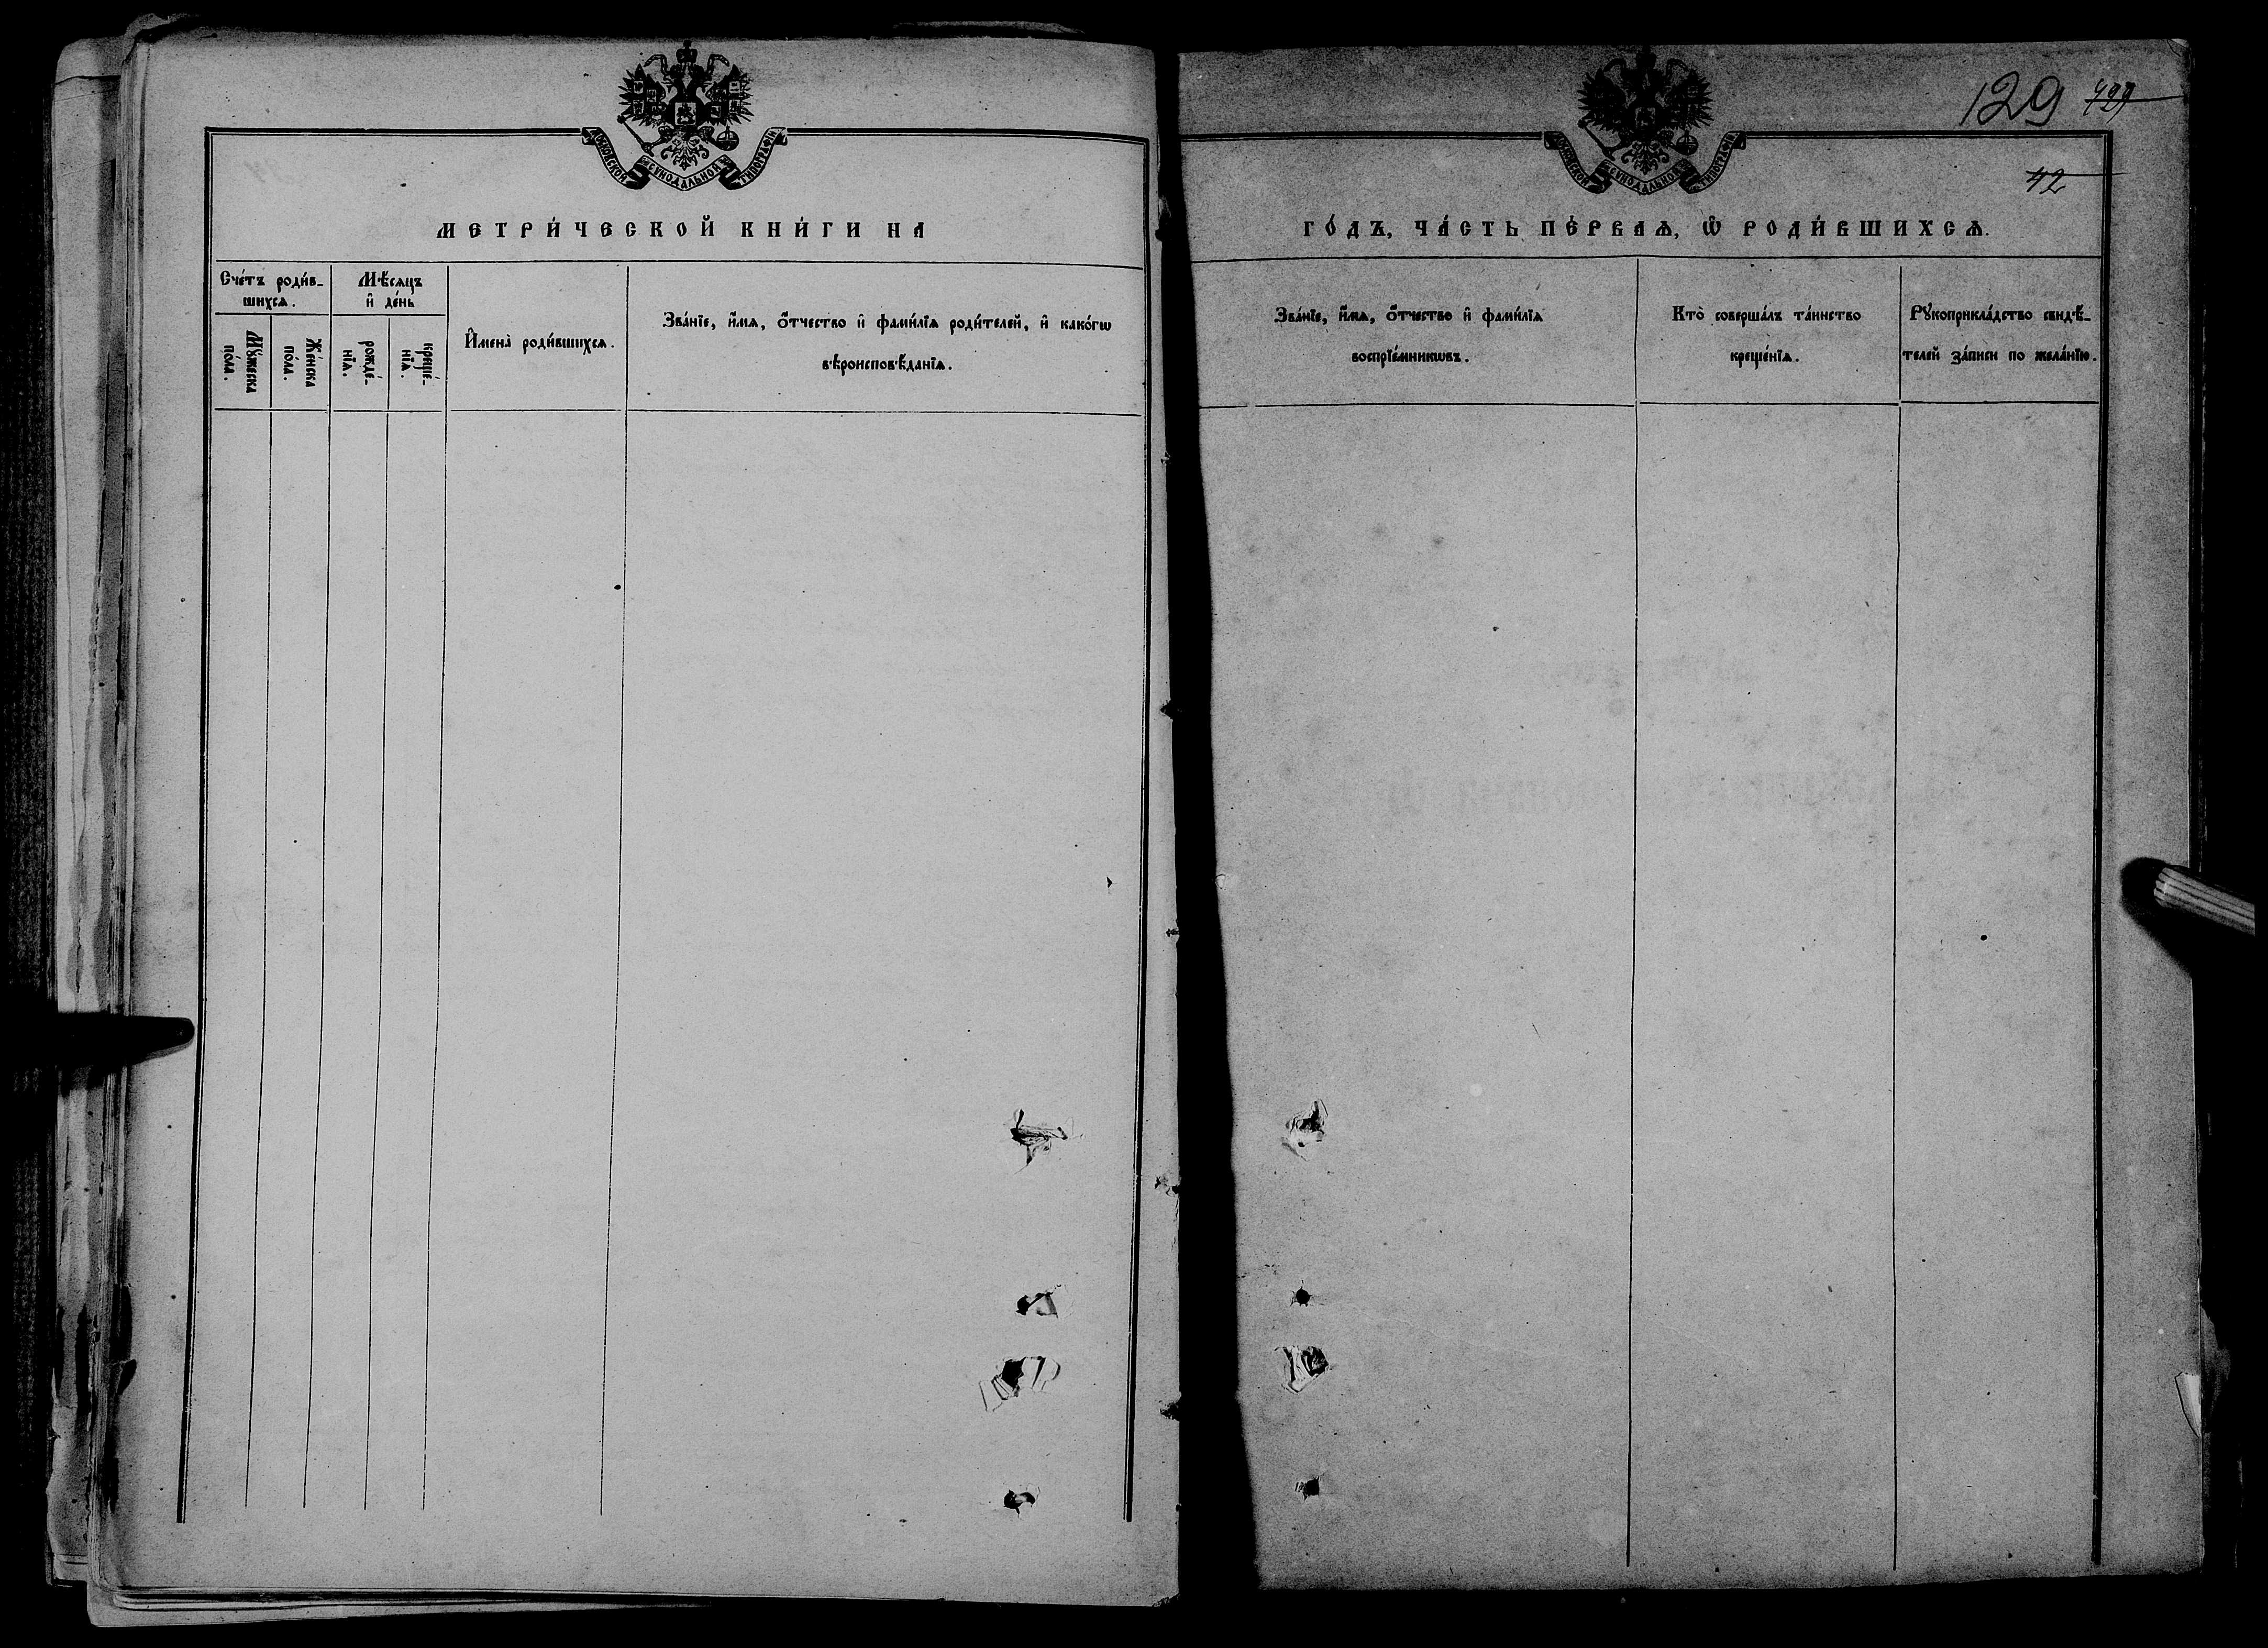 МОСКОВСКОЙ СѴНОДАЛЬНОЙ ТИПОГРАФІИ
МЕТРИ́ЧЕСКОЙ КНИ́ГИ НА
Сче́тъ роди́в-
шихсѧ.
Мѣ́сѧцъ
и҆ де́нь
И҆мена̀ роди́вшихсѧ.
Зва́нїе, и҆́мѧ, ѻ҆́тчество и҆ фами́лїѧ роди́телей, и҆ како́гѡ
вѣроисповѣ́данїѧ.
Мꙋ́жеска
по́ла.
Же́нска
по́ла.
рожде́-
нїѧ.
креще́-
нїѧ.
129 429
42
МОСКОВСКОЙ СѴНОДАЛЬНОЙ ТИПОГРАФІИ
ГО́ДЪ, ЧА́СТЬ ПЕ́РВАѦ, Ѡ҆ РОДИ́ВШИХСѦ.
Зва́нїе, и҆́мѧ, ѻ҆́тчество и҆ фами́лїѧ
воспрїе́мникѡвъ.
Кто̀ соверша́лъ та́инство
креще́нїѧ.
Рꙋкоприкла́дство свидѣ́-
телей за́писи по жела́нїю.